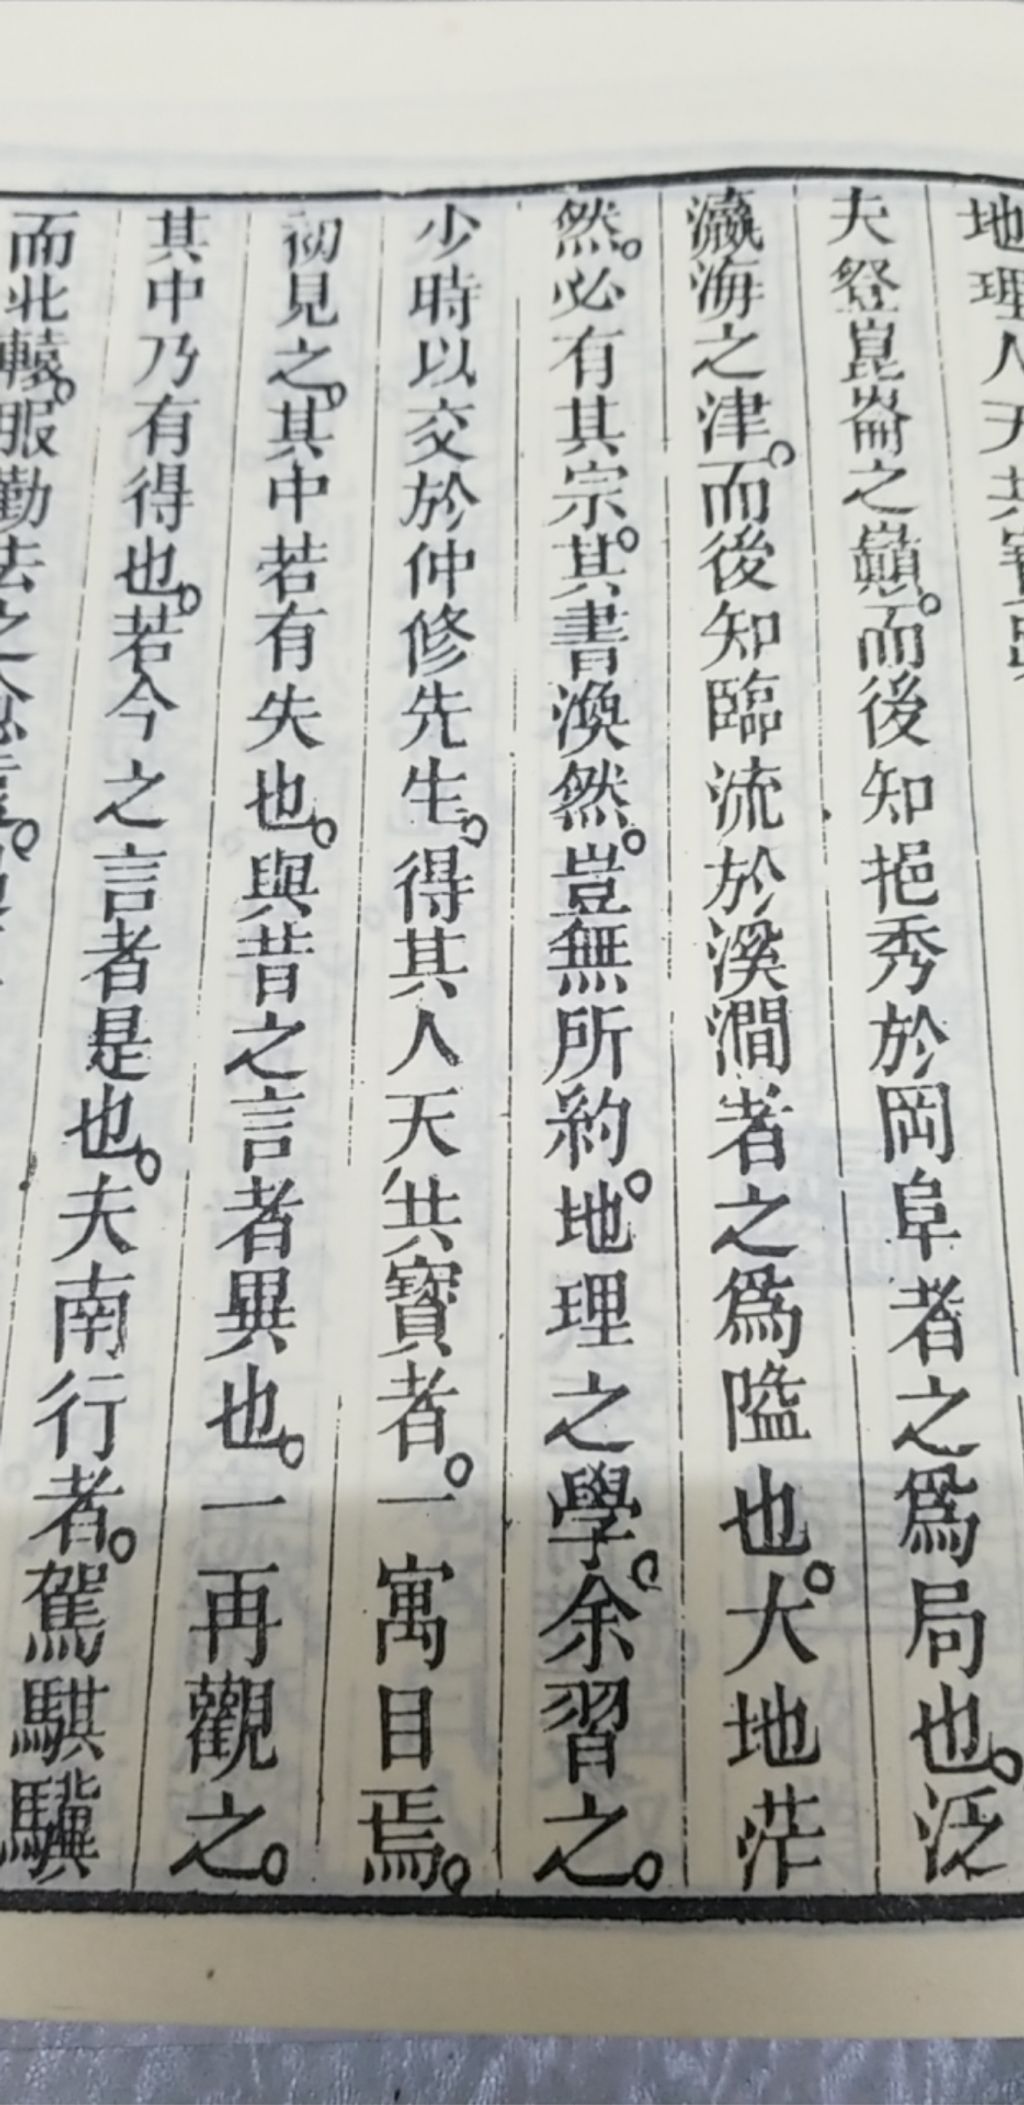 地理人天共寳
夫登崑崙之巔。而後知挹秀於岡阜者之爲局也。泛
瀛海之津。而後知臨流於溪澗者之爲隘也。大地茫
然。必有其宗。其書渙然。豈無所約。地理之學。余習之。
少時以交於仲修先生。得其人天共寳者。一寓目焉。
初見之。其中若有失也。與昔之言者異也。一再觀之。
其中乃有得也。若今之言者是也。夫南行者。駕騏驥
而北轅。服勤